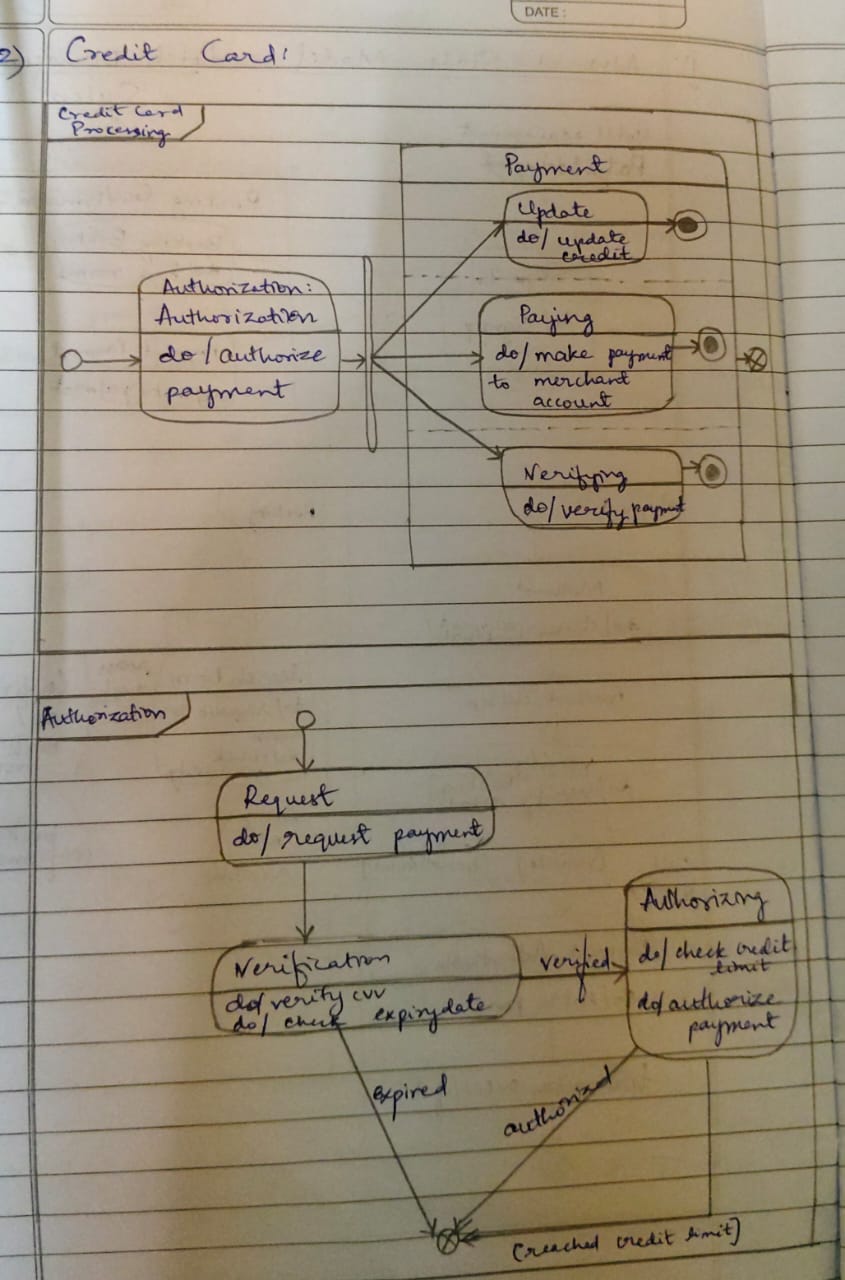 DATE:
2) Credit Card:
Credit Card
Processing
Payment
Update
do/ update
credit
Authorization:
Authorization
do/authorize
payment
Paying
do/ make payment
to merchant
account
Verifying
do/verify payment
Authorization
Request
do/ request payment
Verification
do/verify cvv
do/ check expirydate
verified
Authorizing
do/check credit
limit
do/authorize
payment
expired
authorized
[reached credit limit]